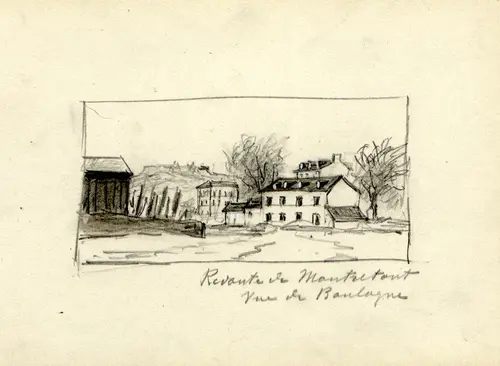 Redoute de Montretout
Vue de Boulogne